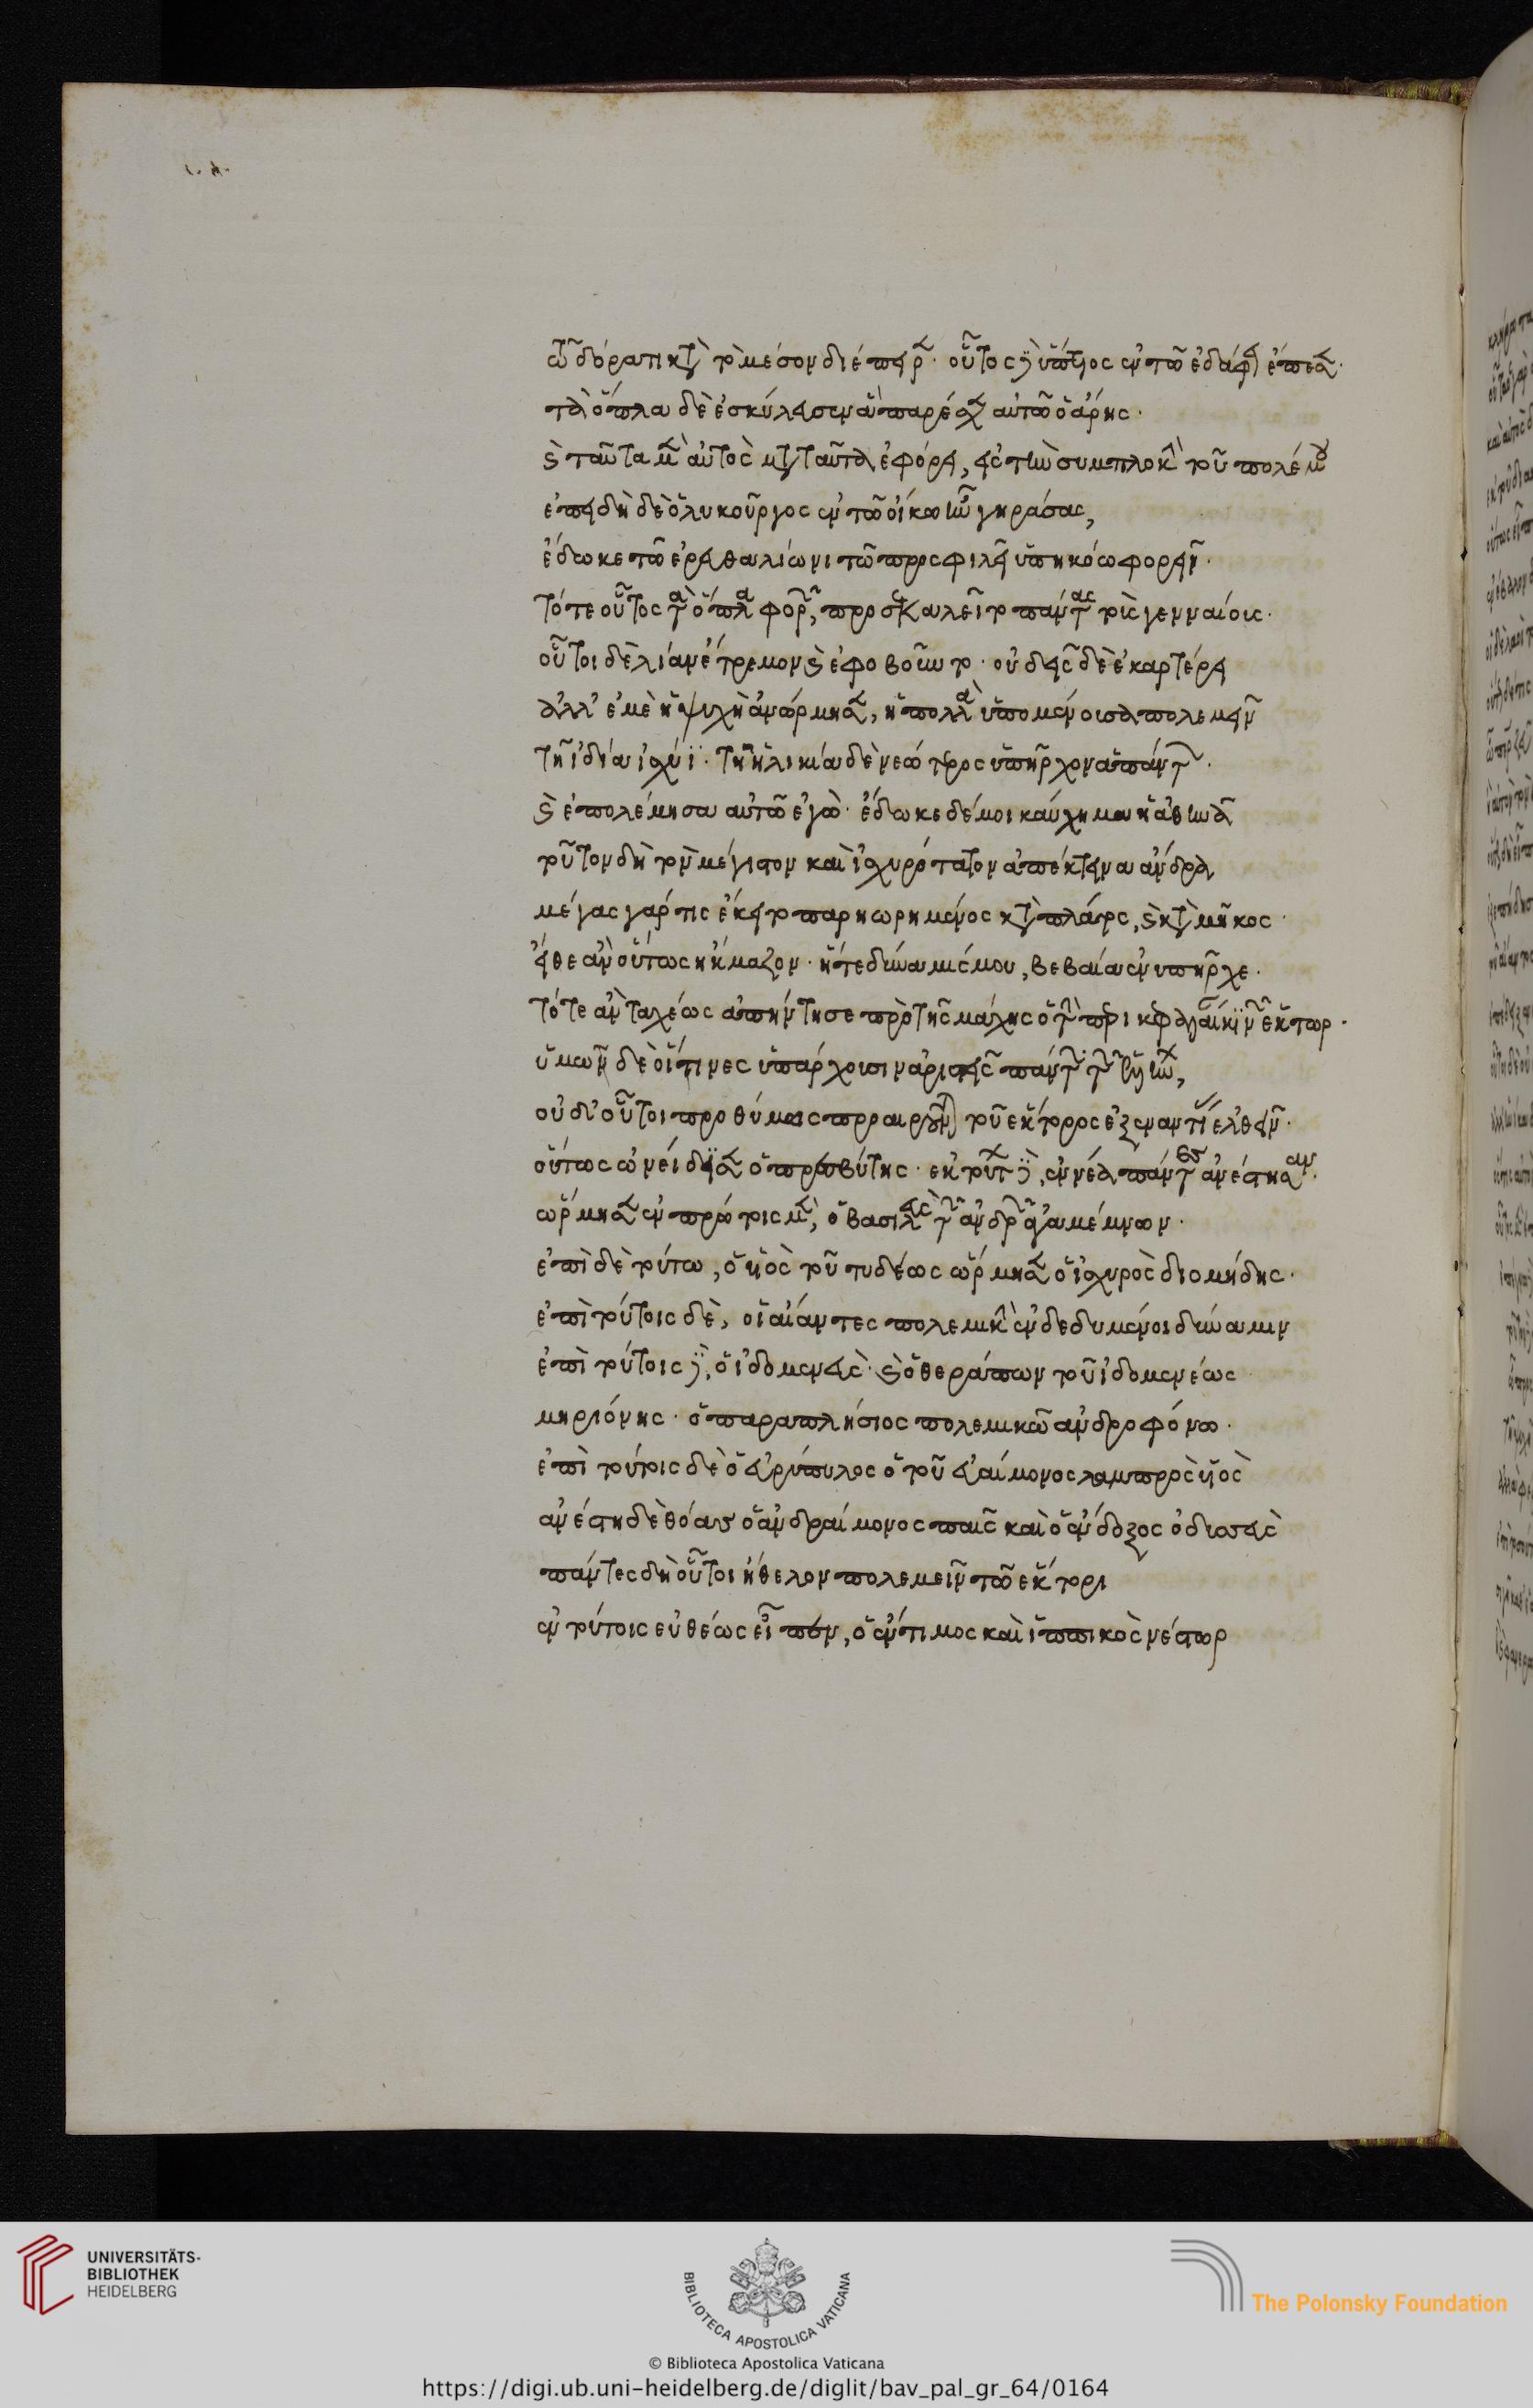 τῶ δόρατι κατὰ τὸ μέσον διέπειρε· οὗτος δὲ ὕπτιος ἐν τῶ ἐδάφει ἔπεσε·
τὰ ὅπλα δὲ ἐσκύλευσεν ἃ παρέσχεν αὐτῶ ὁ ἄρης·
καὶ ταῦτα μὲν αὐτὸς μετὰ ταῦτα ἐφόρει, εἰς τὴν συμπλοκὴν τοῦ πολέμου
ἐπειδὴ δὲ ὁ λυκοῦργος ἐν τῶ οἴκω ἦν γηράσας,
ἔδωκε τῶ ἐρευθαλίωνι τῶ προσφιλεῖ ὑπηκόω φορεῖν·
τότε οὗτος τὰ ὅπλα φορῶν, προσεκαλεῖτο πάντας τοὺς γενναίους·
οὗτοι δὲ λίαν ἔτρεμον καὶ ἐφοβοῦντο· οὐδεὶς δὲ ἐκαρτέρει
ἀλλ' ἐμὲ ἡ ψυχὴ ἀνώρμησεν, ἡ πολλὰ ὑπομένουσα πολεμεῖν
τῆ ἰδία ἰσχύϊ· τῆ ἡλικία δὲ νεώτερος ὑπῆρχον ἁπάντων·
καὶ ἐπολέμησα αὐτῶ ἐγὼ· ἔδωκε δέ μοι καύχημα ἡ ἀθηνᾶ
τοῦτον δὴ τὸν μέγιστον καὶ ἰσχυρότατον ἀπέκτεινα ἄνδρα
μέγας γάρ τις ἔκειτο παρηωρημένος κατὰ πλάτος, καὶ κατὰ μῆκος·
εἴθε ἂν οὕτως ἤκμαζον· ἥ τε δύναμίς μου, βεβαία ἐνυπῆρχε·
τότε ἂν ταχέως ἀπήντησε πρὸ τῆς μάχης ὁ τὴν περικεφαλαίαν κινῶν ἕκτωρ·
ὑμῶν δὲ οἵτινες ὑπάρχουσιν ἄριστεῖς πάντων τῶν ἑλλήνων,
οὐδ' οὗτοι προθύμως προαιροῦνται τοῦ ἕκτορος ἐξεναντίας ἐλθεῖν·
οὕτως ὠνείδισεν ὁ πρεσβύτης· ἐκ τούτου δὲ, ἐννέα πάντες ἀνέστησαν·
ὥρμησεν ἐν πρώτοις μὲν, ὁ βασιλεὺς τῶν ἀνδρῶν ἀγαμέμνων·
ἐπὶ δὲ τούτω, ὁ υἱὸς τοῦ τυδέως ὥρμησεν ὁ ἰσχυρὸς διομήδης·
ἐπὶ τούτοις δὲ, οἱ αἴαντες πολεμικὴν ἐνδεδυμένοι δύναμιν
ἐπὶ τούτοις δὲ, ὁ ἰδομενεὺς· καὶ ὁ θεράπων τοῦ ἰδομενέως
μηριόνης· ὁ παραπλήσιος πολεμικῶ ἀνδροφόνω·
ἐπὶ τούτοις δὲ ὁ εὐρύπυλος ὁ τοῦ εὐαίμονος λαμπρὸς υἱὸς
ἀνέστη δὲ θόας ὁ ἀνδραίμονος παῖς καὶ ὁ ἔνδοξος ὀδυσσεὺς
πάντες δὴ οὗτοι ἤθελον πολεμεῖν τῶ ἕκτορι
ἐν τούτοις εὐθέως εἶπεν, ὁ ἔντιμος καὶ ἱππικὸς νέστωρ
UNIVERSITÄTS-
BIBLIOTHEK
HEIDELBERG
BIBLIOTECA APOSTOLICA VATICANA
The Polonsky Foundation
© Biblioteca Apostolica Vaticana
https://digi.ub.uni-heidelberg.de/diglit/bav_pal_gr_64/0164